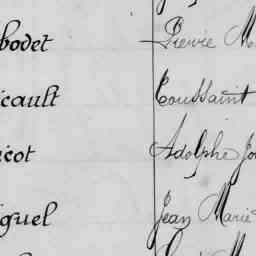 bodet Pierre M
icault Toussaint
icot Adolphe Jo
guel Jean Marie